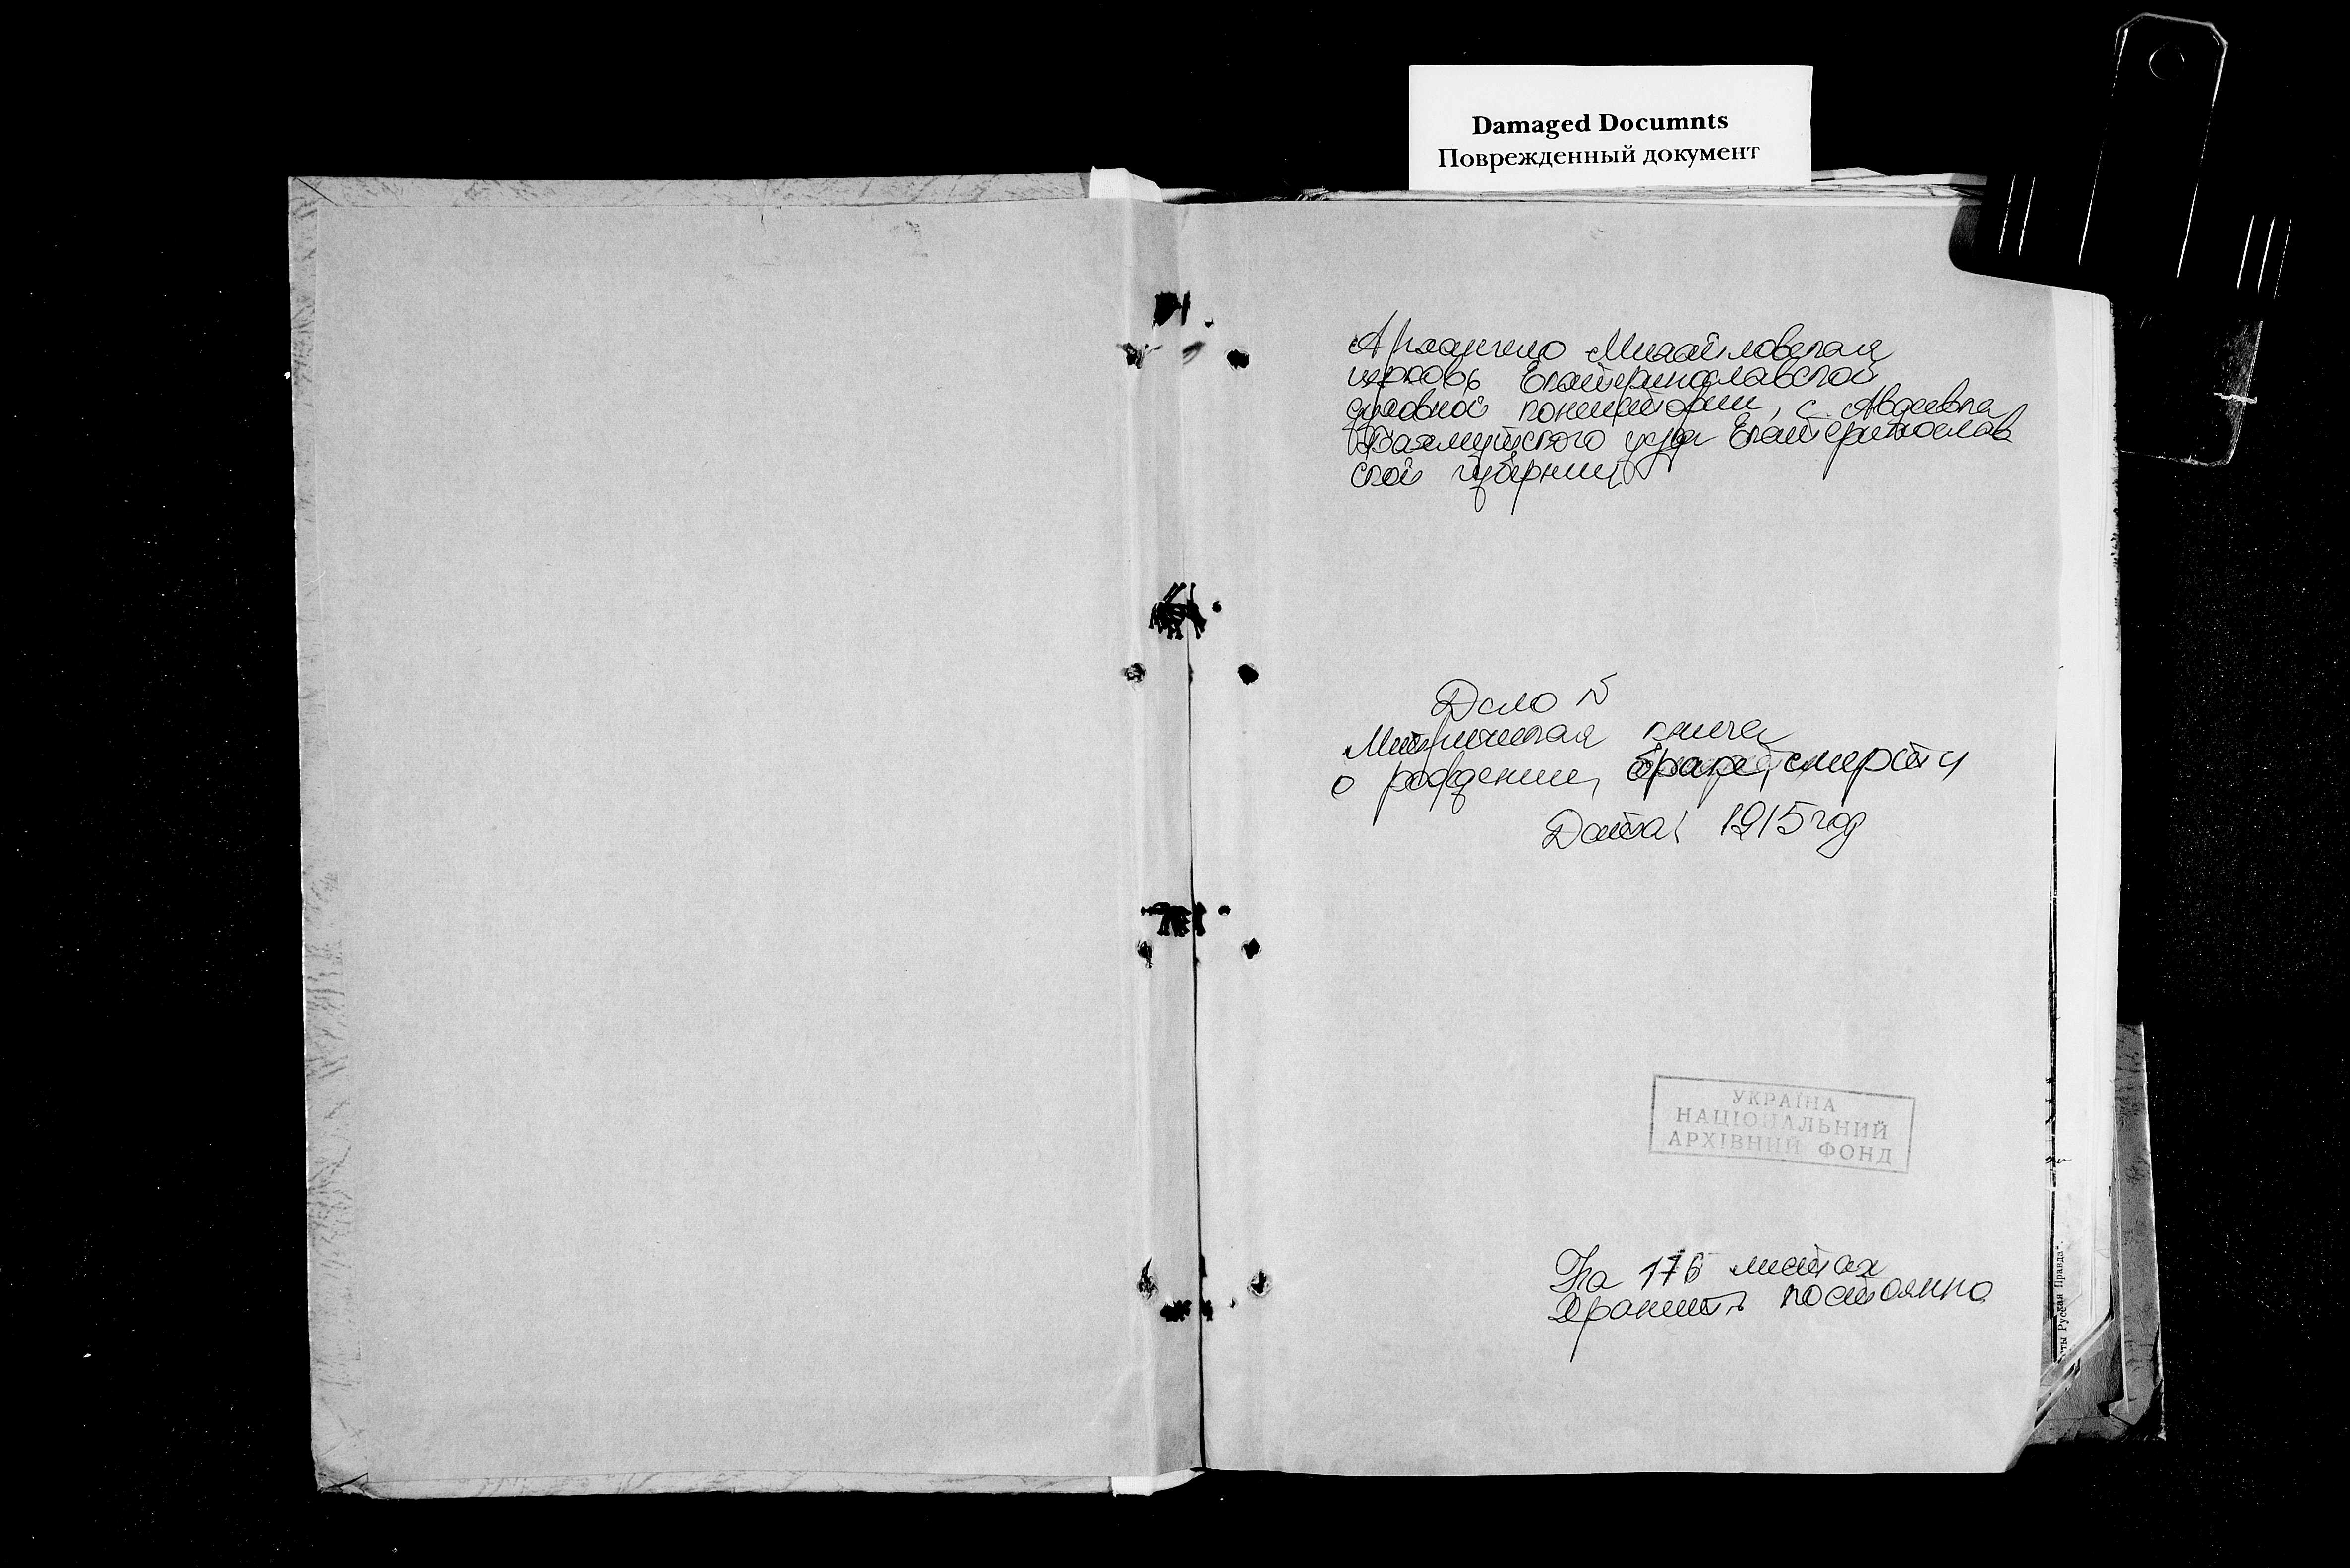 Damaged Documnts
Поврежденный документ
Архангело Михайловская
церковь Екатеринославской
духовной консистории, с. Авдеевка
Бахмутского уезда Екатеринослав
ской губернии
Дело N
Метрическая книга
о рождении, браке, смерти
Дата: 1915 год
УКРАЇНА
НАЦІОНАЛЬНИЙ
АРХІВНИЙ ФОНД
На 176 листах
Хранить постоянно
Русская Правда".